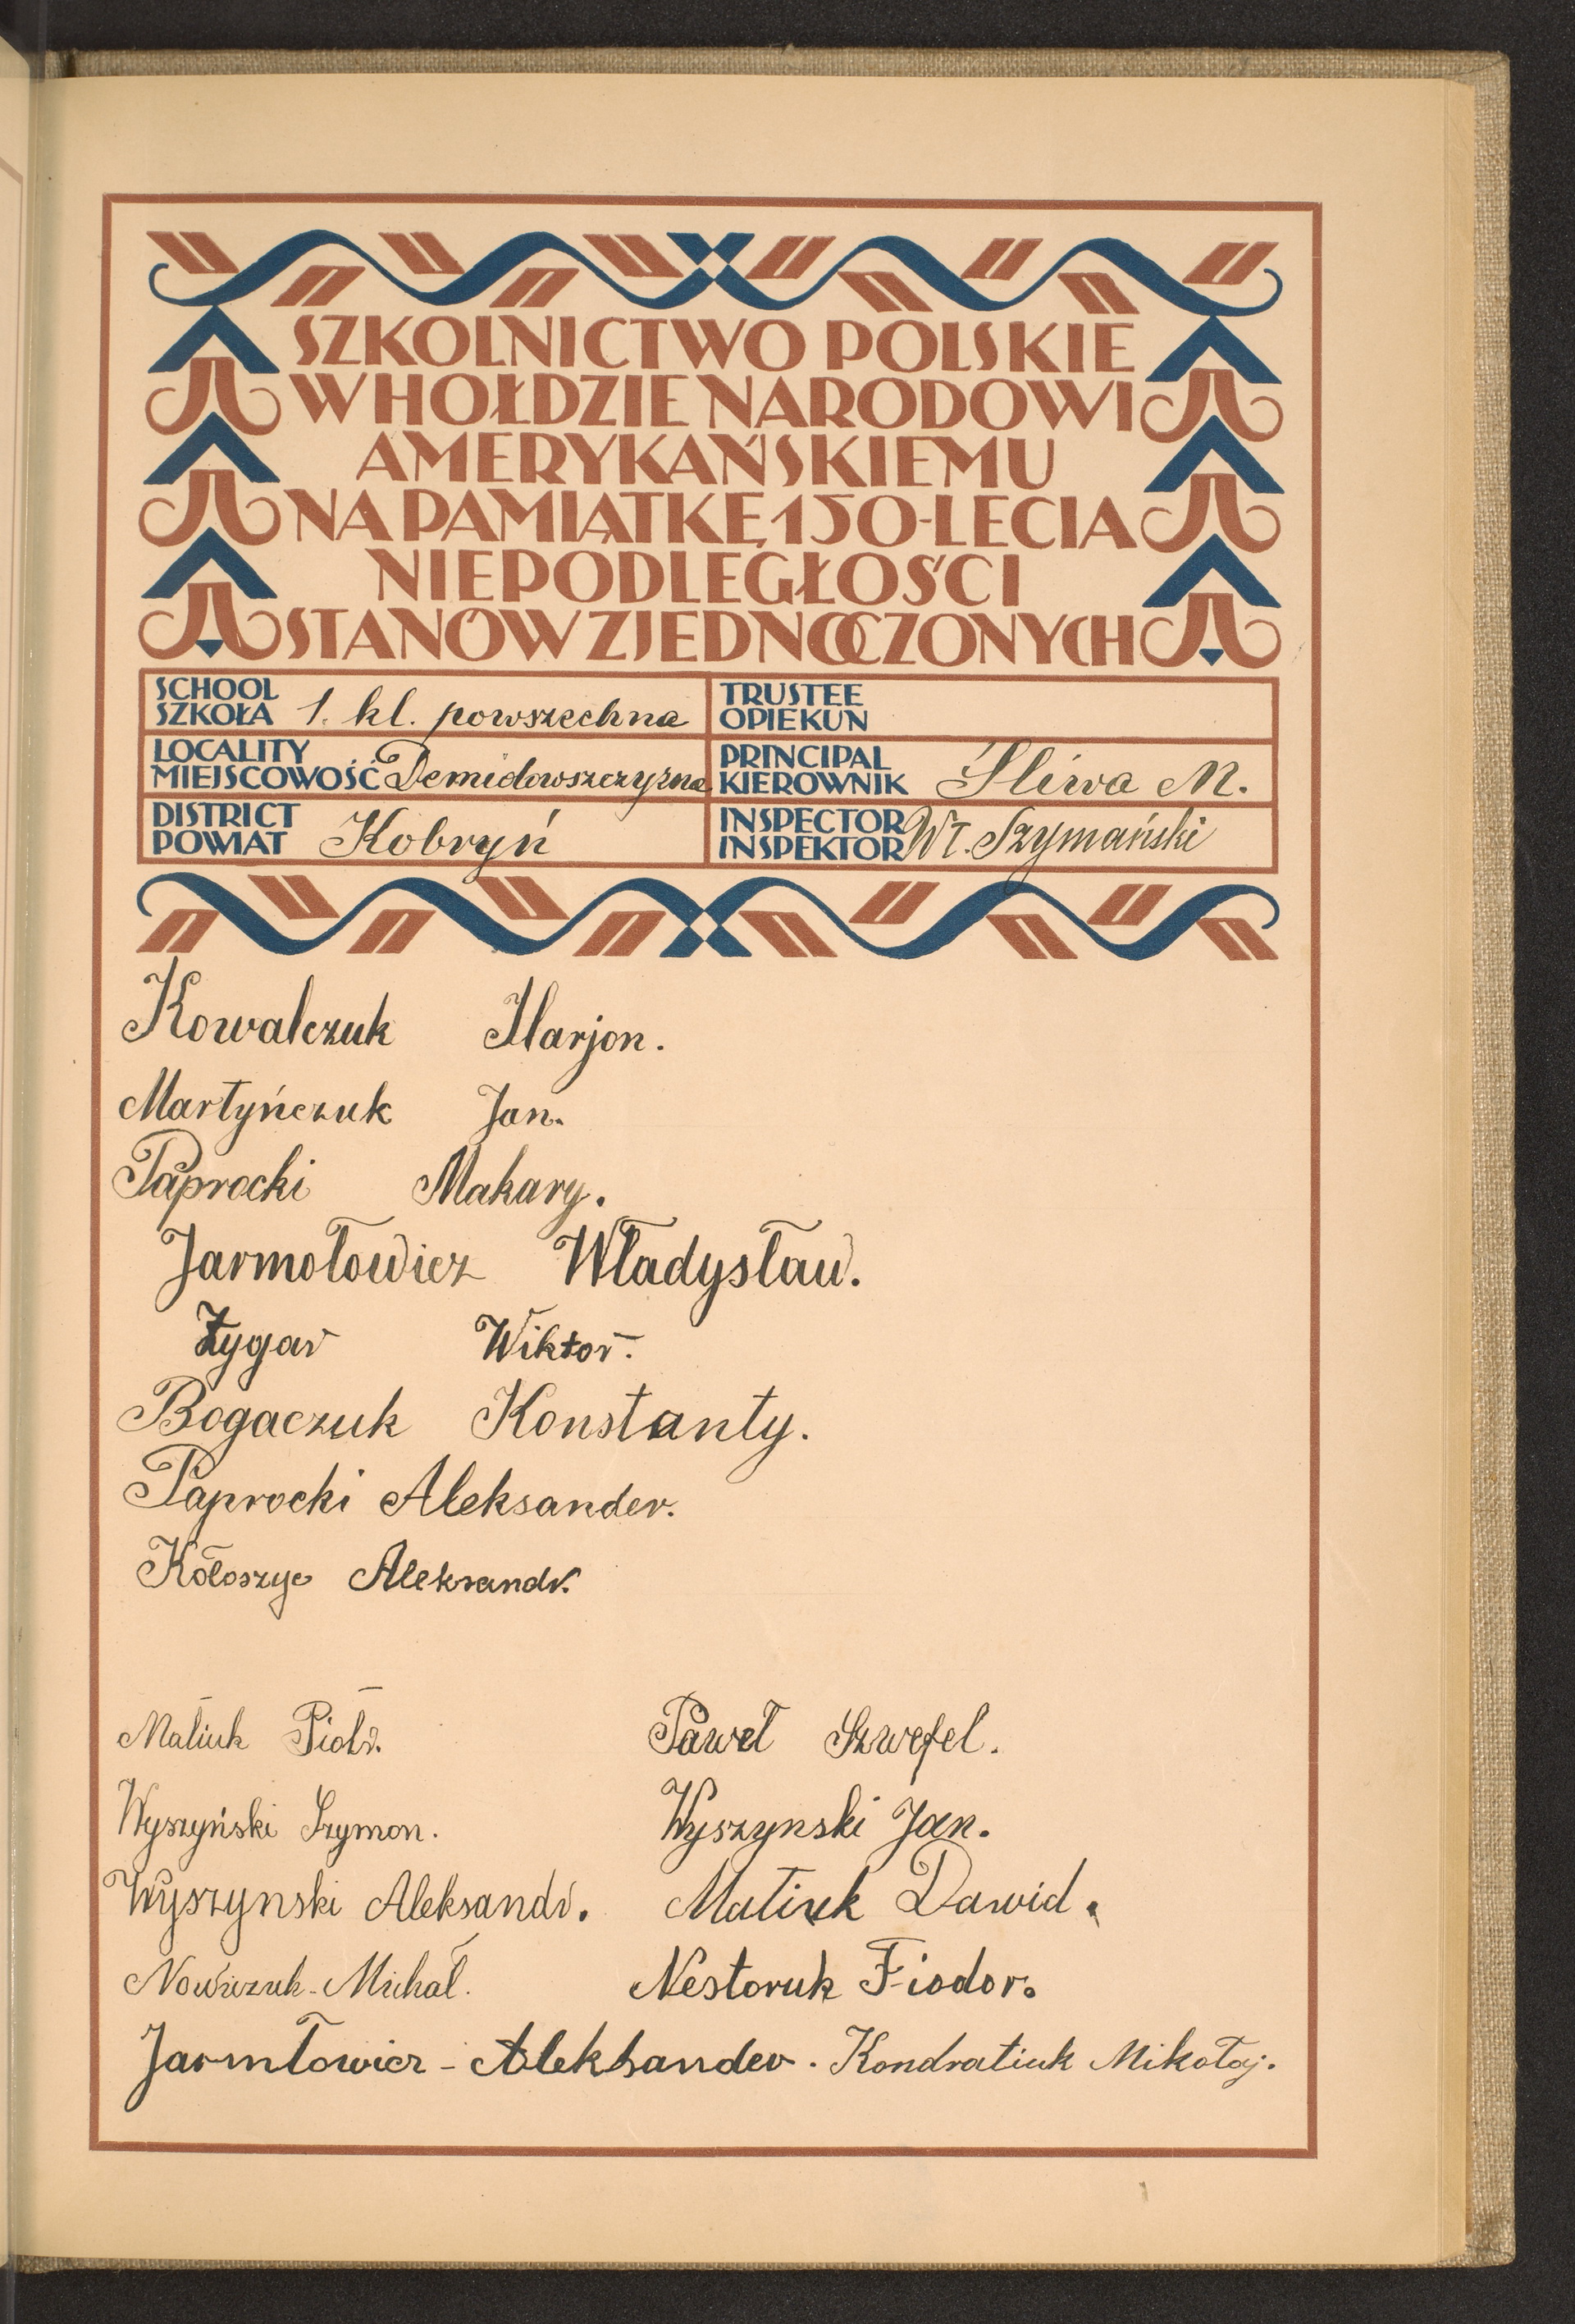 SZKOLNICTWO POLSKIE
W HOŁDZIE NARODOWI
AMERYKAŃSKIEMU
NA PAMIĄTKĘ 150-LECIA
NIEPODLEGŁOŚCI
STANÓW ZJEDNOCZONYCH
SCHOOL
SZKOŁA 1. kl. powszechna
TRUSTEE
OPIEKUN
LOCALITY
MIEJSCOWOŚĆ Demidowszczyzna
PRINCIPAL
KIEROWNIK Śliwa M.
DISTRICT
POWIAT Kobryń
INSPECTOR
INSPEKTOR Wł. Szymański
Kowalczuk Ilarjon.
Martyńczuk Jan.
Paprocki Makary.
Jarmołowicz Władysław.
Żygar Wiktor.
Bogaczuk Konstanty.
Paprocki Aleksander.
Kołoszyc Aleksandr.
Maliuk Piotr.
Paweł Szwefel.
Wyszyński Szymon.
Wyszynski Jan.
Wyszynski Aleksandr.
Matiuk Dawid.
Nowiczuk-Michał.
Nestoruk Fiodor.
Jarmłowicz - Aleksander.
Kondratiuk Mikołaj.